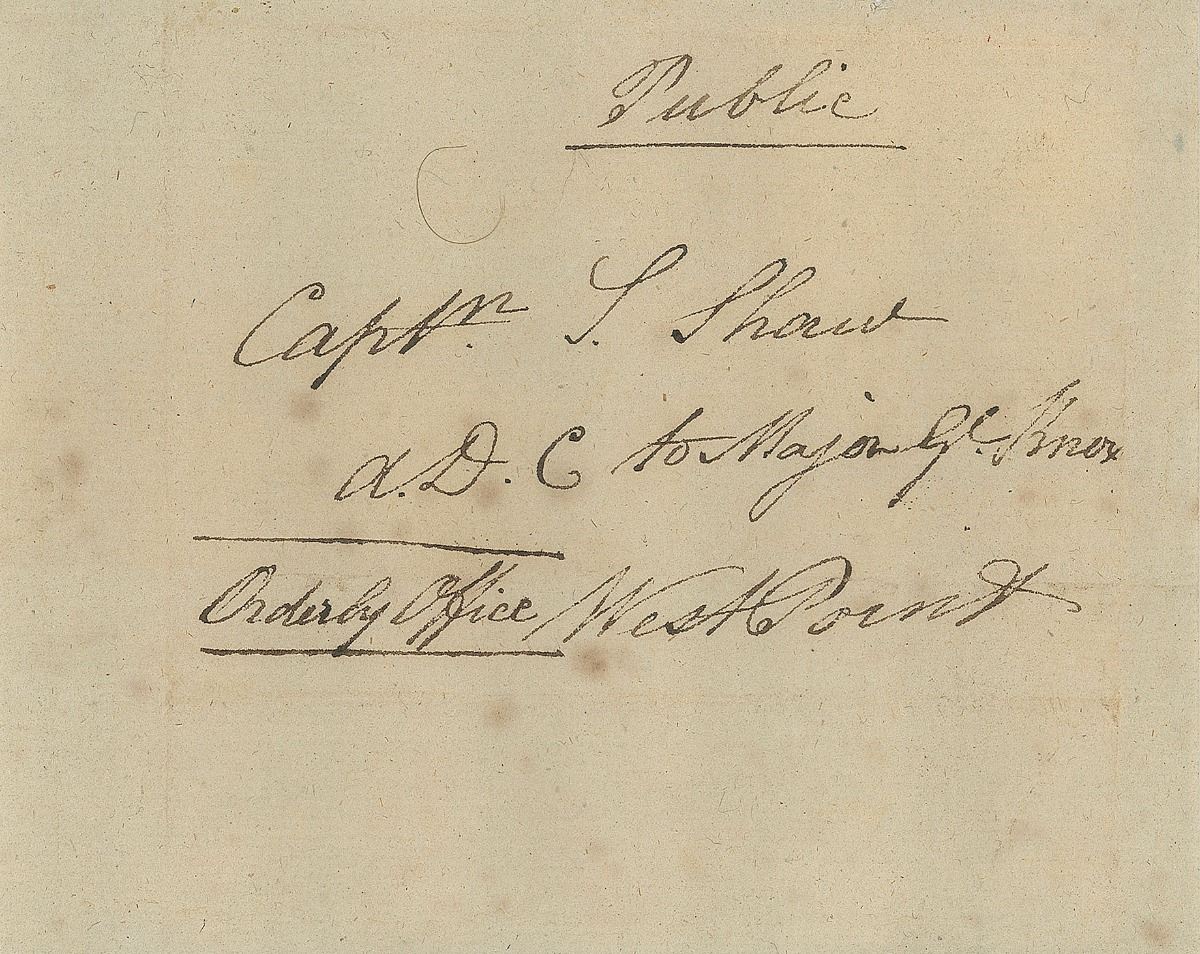 Public
Captn. S. Shaw
A.D.C to Major Gl. Knox
Orderly Office West Point